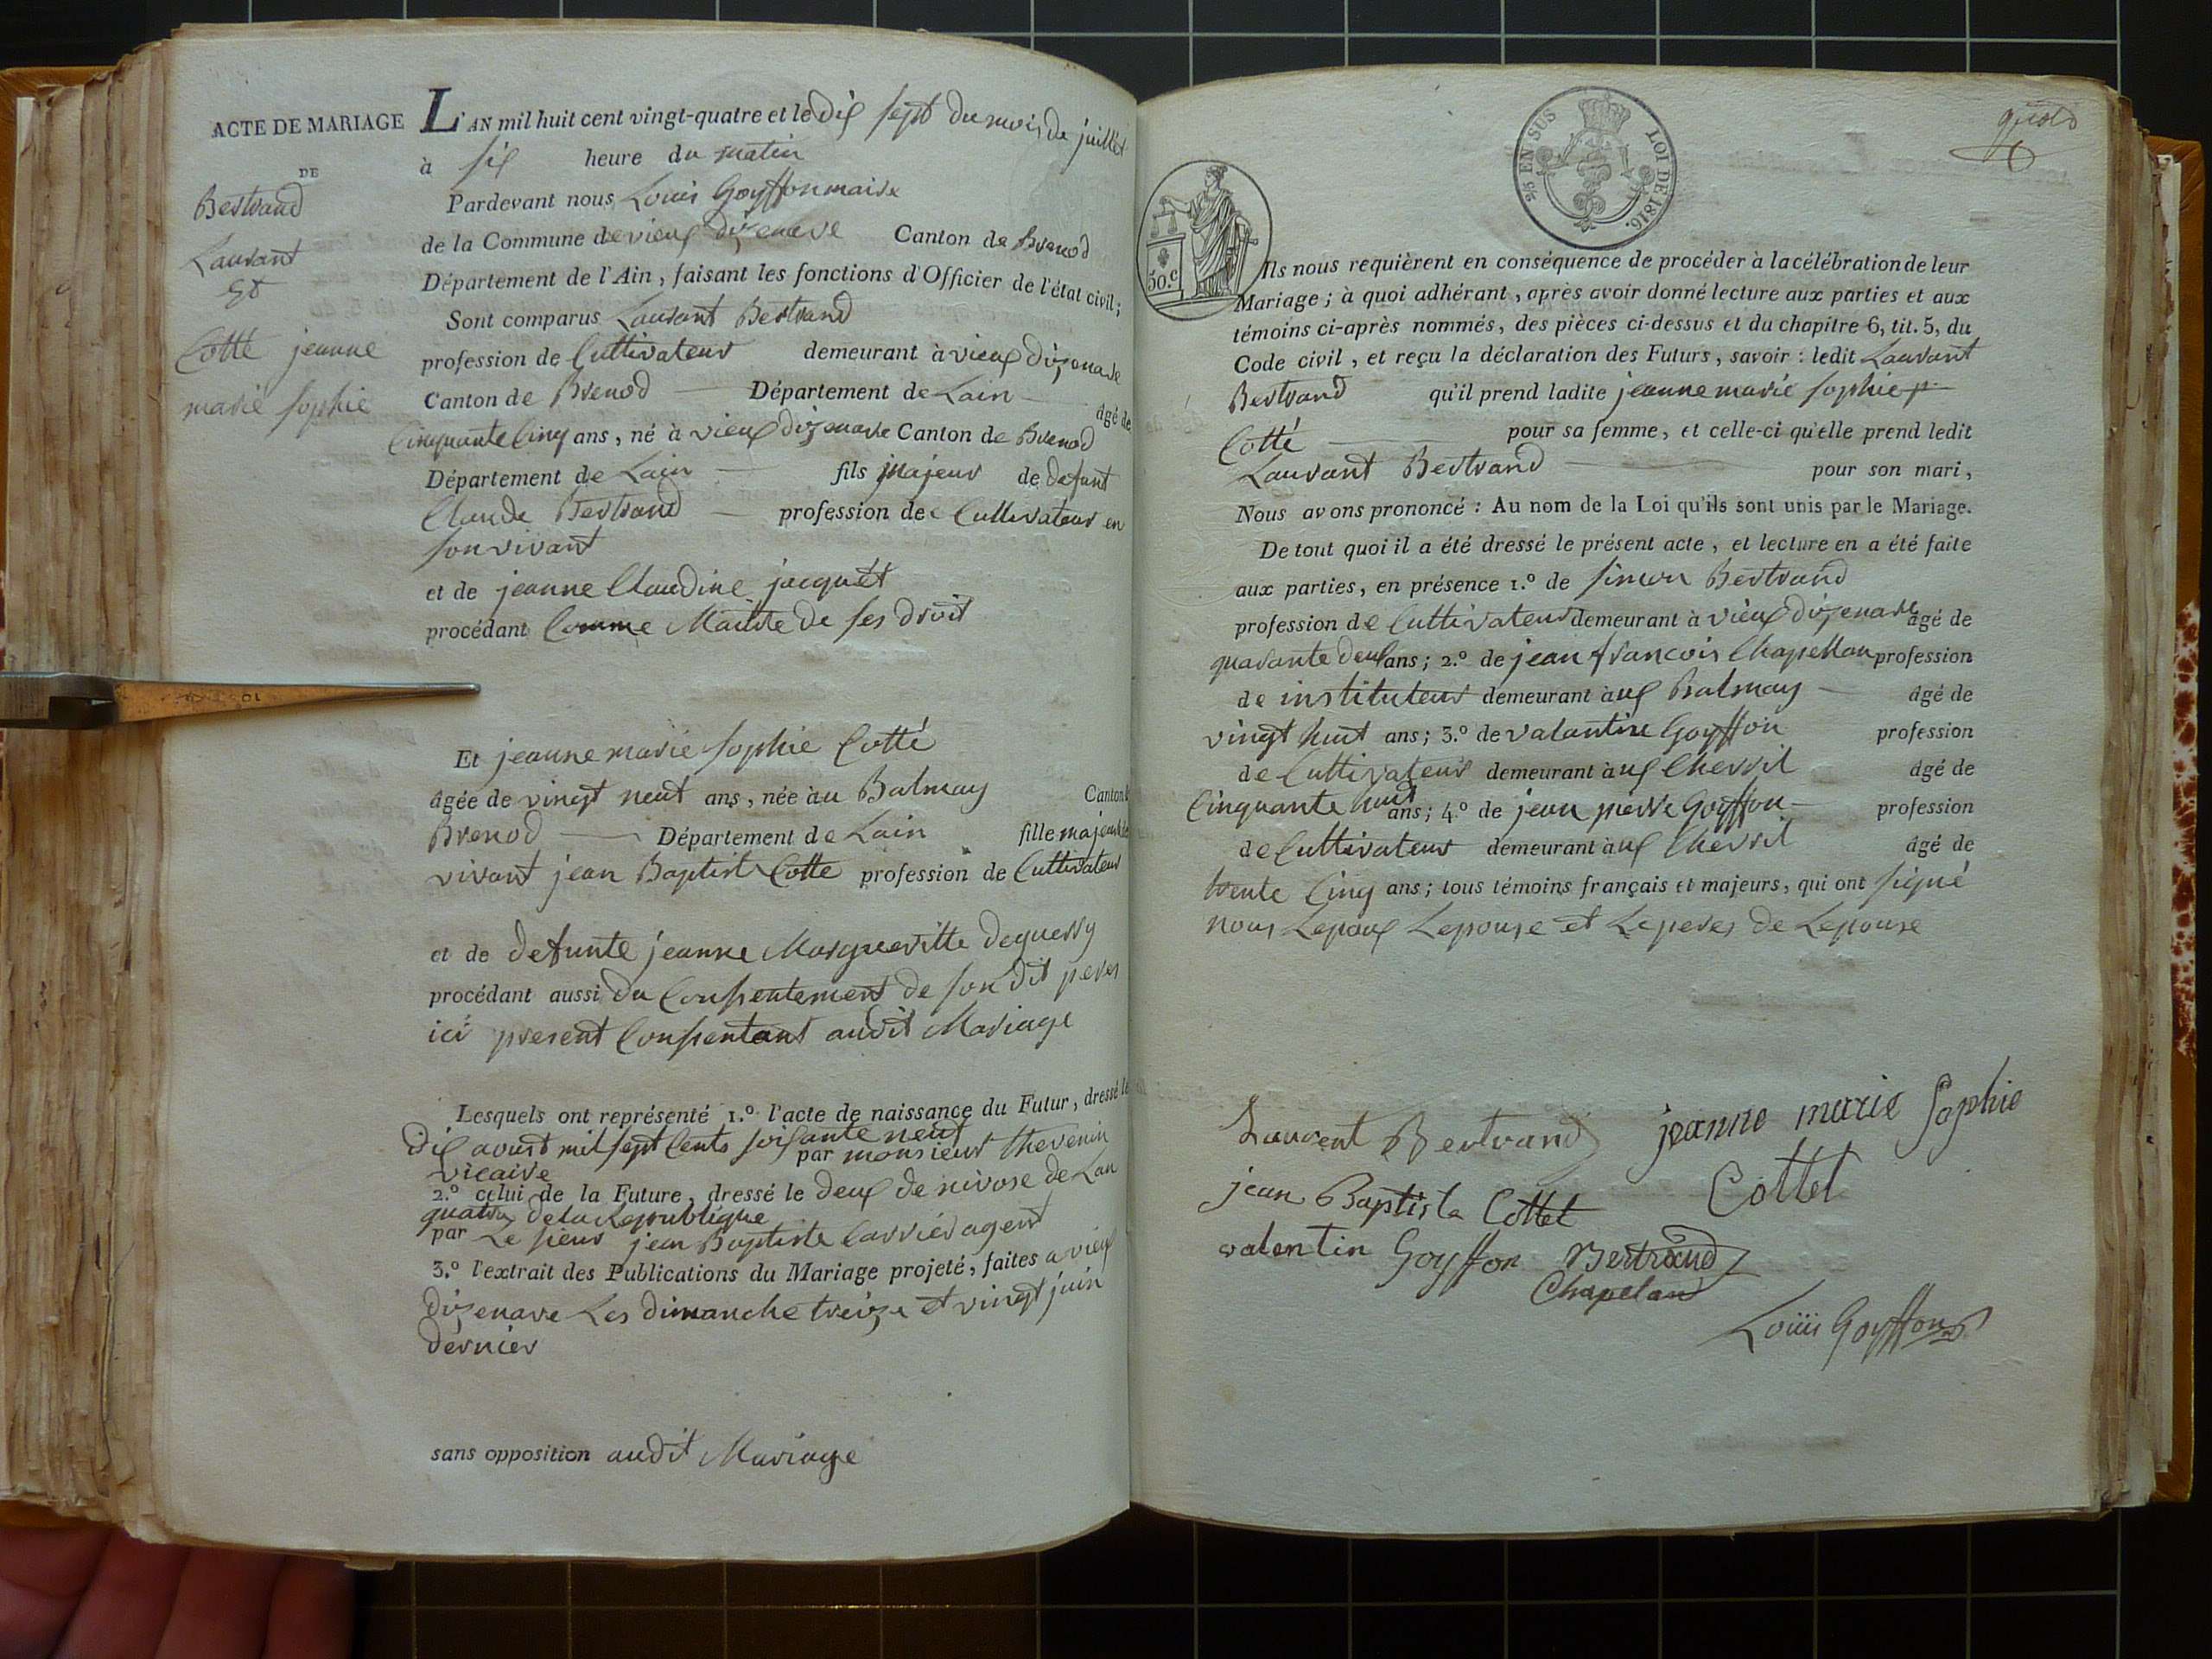 ACTE DE MARIAGE
DE
Bertrand
Laurant
Et
Cotté jeanne
marie sophie
L'AN mil huit cent vingt-quatre et le dix sept du mois de juillet
à six heure du matin
Pardevant nous Louis Goyffon maire
de la Commune de vieux dizenave Canton de Brenod
Département de l'Ain, faisant les fonctions d'Officier de l'état civil;
Sont comparus Laurant Bertrand
profession de Cultivateur demeurant à vieux dizenave
Canton de Brenod Département de Lain âgé de
Cinquante Cinq ans, né à vieux dizenave Canton de Brenod
Département de Lain fils majeur de defunt
Claude Bertrand profession de Cultivateur en
son vivant
et de jeanne Claudine jacquet
procédant Comme Maitre de ses droit
Et jeanne marie sophie Cotté
âgée de vingt neuf ans, née à au Balmay Canton
Brenod Département de Lain fille majeure
vivant jean Baptiste Cotte profession de Cultivateur
et de defunte jeanne Margueritte deguerry
procédant aussi du Consentement de son dit peres
ici present Consentant audit Mariage
Lesquels ont représenté 1.º l'acte de naissance du Futur, dressé le
dix aoust mil sept Cents soisante neuf
par monsieur thevenin
vicaire
2.º celui de la Future, dressé le deux de nivose de Lan
quatre de la Republique
par Le sieur jean Baptiste Carrier agent
3.º l'extrait des Publications du Mariage projeté, faites a vieux
dizenave Les dimanche treize et vingt juin
dernier
sans opposition audit Mariage
2/5 EN SUS LOI DE 1816.
50.c
Ils nous requièrent en conséquence de procéder à la célébration de leur
Mariage; à quoi adhérant, après avoir donné lecture aux parties et aux
témoins ci-après nommés, des pièces ci-dessus et du chapitre 6, tit. 5, du
Code civil, et reçu la déclaration des Futurs, savoir : ledit Laurant
Bertrand qu'il prend ladite jeanne marie sophie
Cotté pour sa femme, et celle-ci qu'elle prend ledit
Laurant Bertrand pour son mari,
Nous avons prononcé : Au nom de la Loi qu'ils sont unis par le Mariage.
De tout quoi il a été dressé le présent acte, et lecture en a été faite
aux parties, en présence 1.º de simon Bertrand
profession de Cultivateur demeurant à vieux dizenave âgé de
quarante deux ans; 2.º de jean francois Chapellan profession
de instituteur demeurant à ux Balmay âgé de
vingt huit ans; 3.º de valantin Goyffon profession
de Cultivateur demeurant à ux Chevril âgé de
Cinquante huit ans; 4.º de jean pierre Goyffon profession
de Cultivateur demeurant à ux Chevril âgé de
trente Cinq ans; tous témoins français et majeurs, qui ont signé
nous Lepoux Lepouse et Leperes de Lepouse
Laurent Bertrand jeanne marie Sophie
Cottet
jean Baptiste Cottet
valentin Goyffon Bertrand
Chapelan
Louis Goyffon